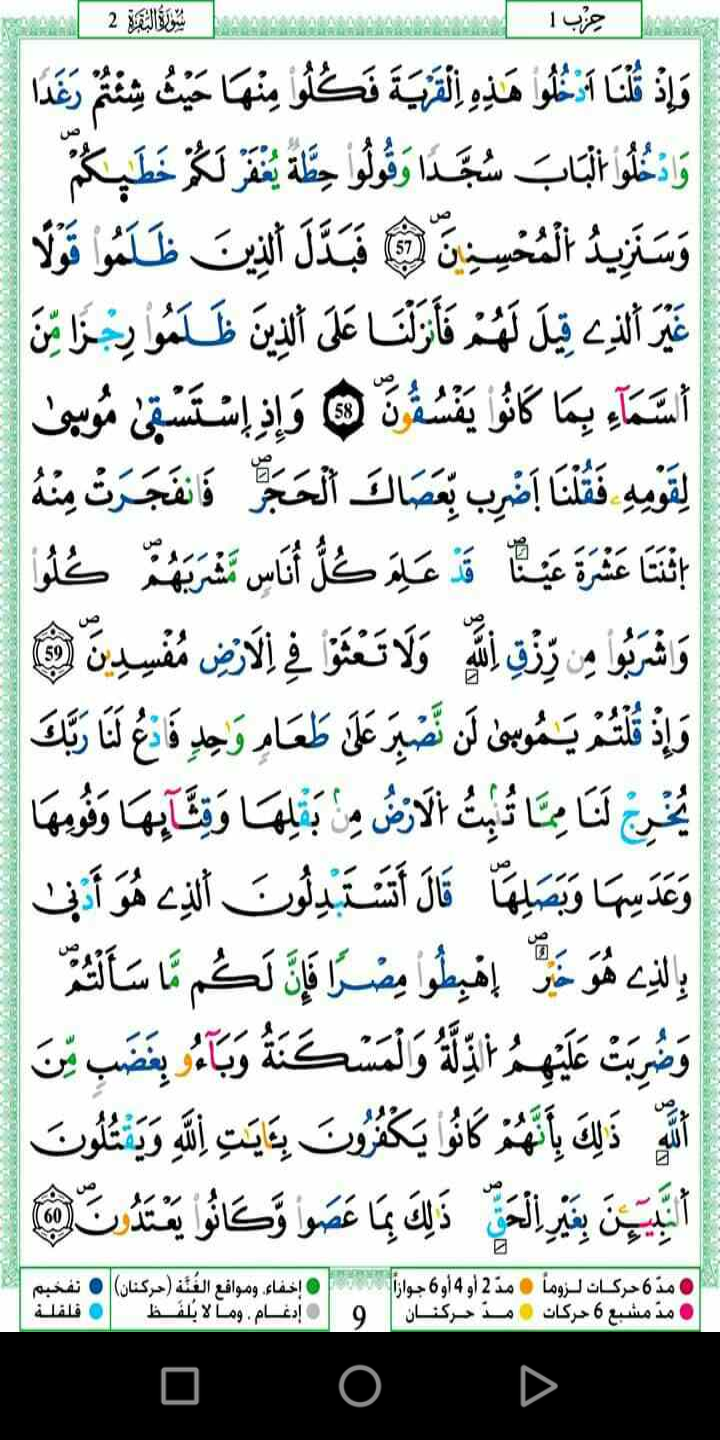 حِزْب 1
سُورَةُ البَقَرَة 2
وَإِذْ قُلْنَا اَ۟دْخُلُوا۟ هَٰذِهِ اِ۬لْقَرْيَةَ فَكُلُوا۟ مِنْهَا حَيْثُ شِئْتُمْ رَغَدًا
وَادْخُلُوا۟ اُ۬لْبَابَ سُجَّدًا وَقُولُوا۟ حِطَّةٌ يُغْفَرْ لَكُمْ خَطَٰيَٰكُمْۖ
وَسَنَزِيدُ اُ۬لْمُحْسِنِينَۖ 57 فَبَدَّلَ اَ۬لذِينَ ظَلَمُوا۟ قَوْلًا
غَيْرَ اَ۬لذِے قِيلَ لَهُمْ فَأَنزَلْنَا عَلَى اَ۬لذِينَ ظَلَمُوا۟ رِجْزًا مِّنَ
اَ۬لسَّمَآءِ بِمَا كَانُوا۟ يَفْسُقُونَۖ 58 وَإِذِ اِ۪سْتَسْقٜىٰ مُوسٜىٰ
لِقَوْمِهِۦ فَقُلْنَا اَ۪ضْرِب بِّعَصَاكَ اَ۬لْحَجَرَۖ فَانفَجَرَتْ مِنْهُ
اُ۪ثْنَتَا عَشْرَةَ عَيْنًاۖ قَدْ عَلِمَ كُلُّ أُنَاسٍ مَّشْرَبَهُمْۖ كُلُوا۟
وَاشْرَبُوا۟ مِن رِّزْقِ اِ۬للَّهِۖ وَلَا تَعْثَوْا۟ فِے اِ۬لَارْضِ مُفْسِدِينَۖ 59
وَإِذْ قُلْتُمْ يَٰمُوسٜىٰ لَن نَّصْبِرَ عَلَىٰ طَعَامٍ وَٰحِدٍ فَادْعُ لَنَا رَبَّكَ
يُخْرِجْ لَنَا مِمَّا تُنۢبِتُ اُ۬لَارْضُ مِنۢ بَقْلِهَا وَقِثَّآئِهَا وَفُومِهَا
وَعَدَسِهَا وَبَصَلِهَاۖ قَالَ أَتَسْتَبْدِلُونَ اَ۬لذِے هُوَ أَدْنٜىٰ
بِالذِے هُوَ خَيْرٌۖ اِ۪هْبِطُوا۟ مِصْرًا فَإِنَّ لَكُم مَّا سَأَلْتُمْۖ
وَضُرِبَتْ عَلَيْهِمُ اُ۬لذِّلَّةُ وَالْمَسْكَنَةُ وَبَآءُو بِغَضَبٍ مِّنَ
اَ۬للَّهِۖ ذَٰلِكَ بِأَنَّهُمْ كَانُوا۟ يَكْفُرُونَ بِـَٔايَٰتِ اِ۬للَّهِ وَيَقْتُلُونَ
اَ۬لنَّبِيٓـِٕينَ بِغَيْرِ اِ۬لْحَقِّۖ ذَٰلِكَ بِمَا عَصَوا۟ وَّكَانُوا۟ يَعْتَدُونَۖ 60
مدّ 6 حركات لزوماً مدّ 2 أو 4 أو 6 جوازاً إخفاء، ومواقع الغُنَّة (حركتان) تفخيم
مدّ مشبع 6 حركات مـدّ حركتـان إدغـام ، ومـا لا يُلفَـظ قلقلة
9